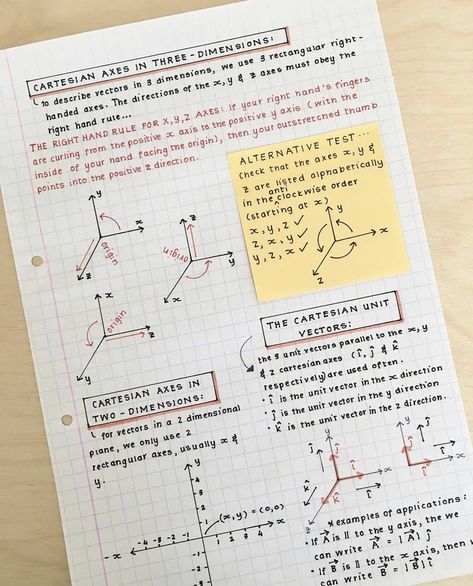 CARTESIAN AXES IN THREE-DIMENSIONS:
to describe vectors in 3 dimensions, we use 3 rectangular right-
handed axes. The directions of the x, y & z axes must obey the
right hand rule...
THE RIGHT HAND RULE FOR X, Y, Z AXES: if your right hand's fingers
are curling from the positive x axis to the positive y axis (with the
inside of your hand facing the origin), then your outstretched thumb
points into the positive z direction.
ALTERNATIVE TEST...
Check that the axes x, y &
z are listed alphabetically
in the anticlockwise order
(starting at x)
x, y, z ✓
z, x, y ✓
y, z, x ✓
y
x
z
y
x
z
origin
z
y
x
origin
x
z
y
origin
THE CARTESIAN UNIT
VECTORS:
the 3 unit vectors parallel to the x, y
& z cartesian axes (î, ĵ & k̂
respectively) are used often.
· î is the unit vector in the x direction
· ĵ is the unit vector in the y direction
· k̂ is the unit vector in the z direction.
CARTESIAN AXES IN
TWO-DIMENSIONS:
for vectors in a 2 dimensional
plane, we only use 2
rectangular axes, usually x &
y.
y
4
3
2
1
(x,y) = (0,0)
-x
-4 -3 -2 -1
1 2 3 4
x
-1
-2
y
ĵ
ĵ
k̂
k̂
î
x
î
z
y
ĵ
ĵ
î
x
î
*examples of applications:
· If A⃗ is || to the y axis, the we
can write A⃗ = |A⃗| ĵ
· If B⃗ is || to the x axis, then w
can write B⃗ = |B⃗| î